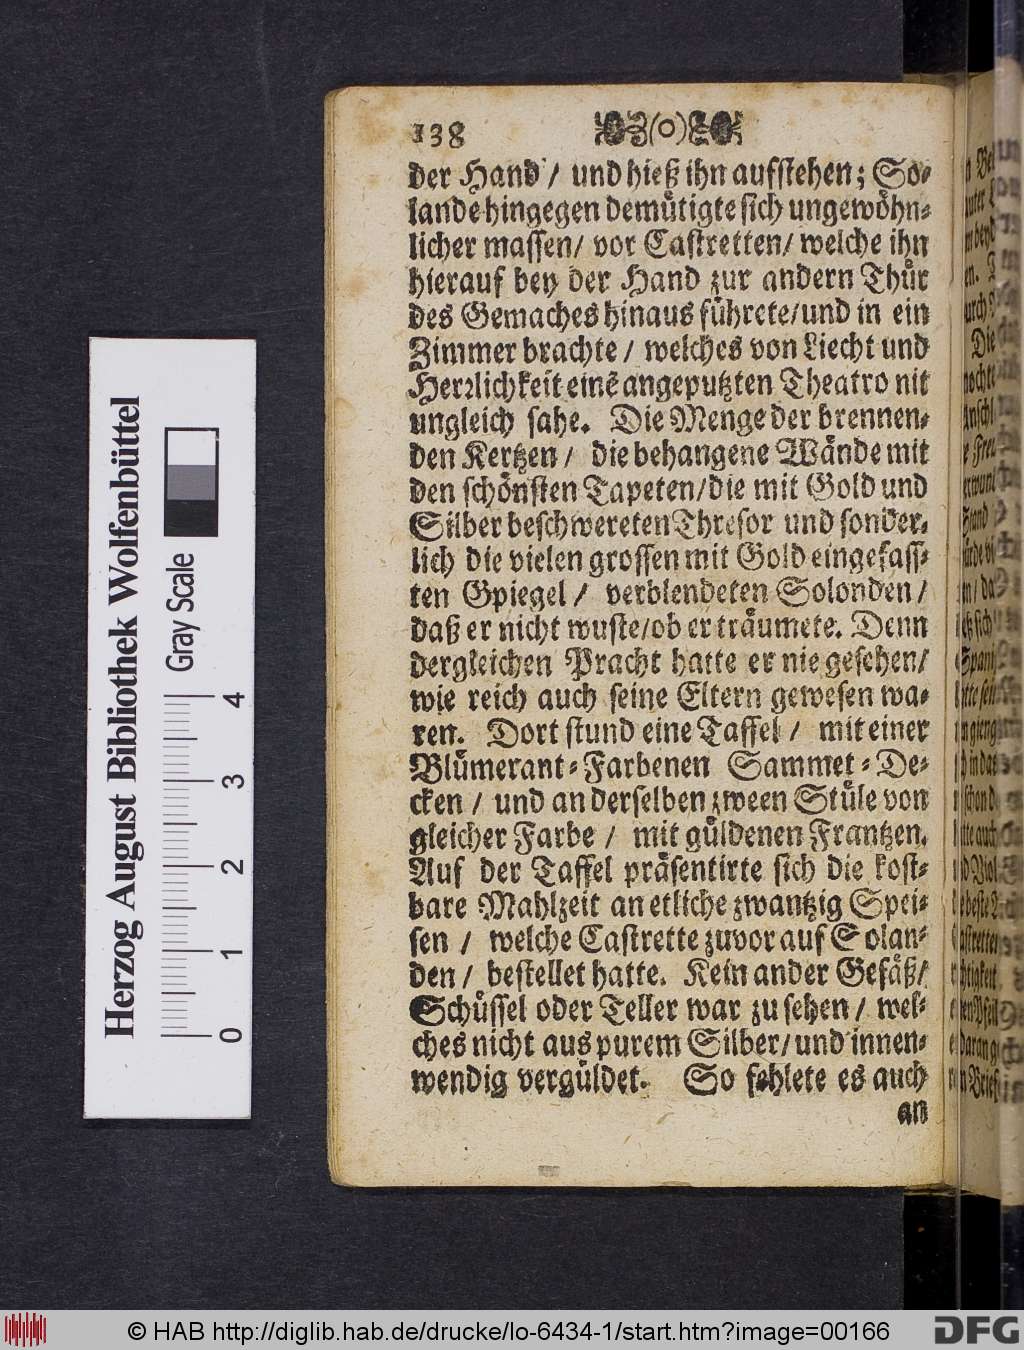 138 (o)
der Hand / und hieß ihn aufstehen; So-
lande hingegen demütigte sich ungewöhn-
licher massen / vor Castretten / welche ihn
hierauf bey der Hand zur andern Thür
des Gemaches hinaus führete / und in ein
Zimmer brachte / welches von Liecht und
Herrlichkeit einē angeputzten Theatro nit
ungleich sahe. Die Menge der brennen-
den Kertzen / die behangene Wände mit
den schönsten Tapeten / die mit Gold und
Silber beschwereten Thresor und sonder-
lich die vielen grossen mit Gold eingefass-
ten Gpiegel / verblendeten Solonden /
daß er nicht wuste / ob er träumete. Denn
dergleichen Pracht hatte er nie gesehen /
wie reich auch seine Eltern gewesen wa-
ren. Dort stund eine Taffel / mit einer
Blümerant-Farbenen Sammet-De-
cken / und an derselben zween Stüle von
gleicher Farbe / mit güldenen Frantzen.
Auf der Taffel präsentirte sich die kost-
bare Mahlzeit an etliche zwantzig Spei-
sen / welche Castrette zuvor auf Solan-
den / bestellet hatte. Kein ander Gefäß /
Schüssel oder Teller war zu sehen / wel-
ches nicht aus purem Silber / und innen-
wendig vergüldet. So fehlete es auch
an
Herzog August Bibliothek Wolfenbüttel
Gray Scale
0 1 2 3 4
© HAB http://diglib.hab.de/drucke/lo-6434-1/start.htm?image=00166
DFG